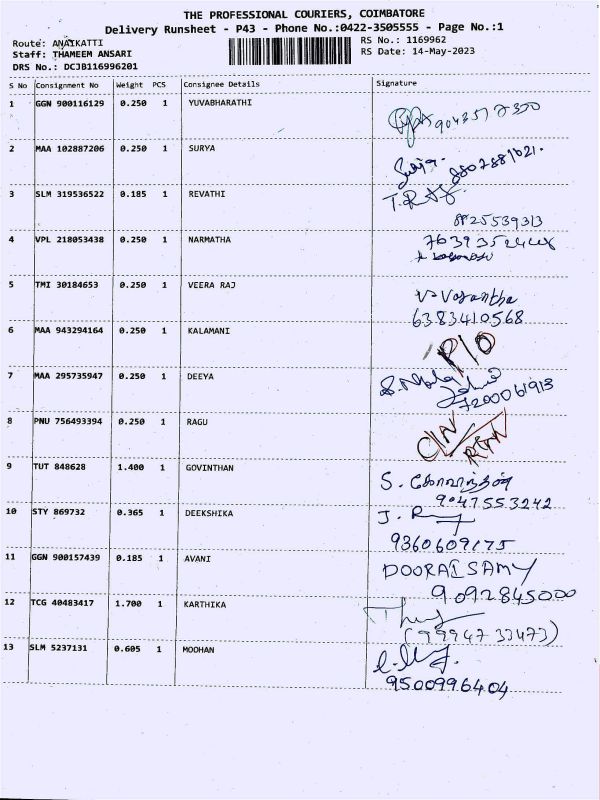 THE PROFESSIONAL COURIERS, COIMBATORE
Delivery Runsheet - P43 - Phone No.:0422-3505555 - Page No.:1
Route: ANAIKATTI RS No.: 1169962
Staff: THAMEEM ANSARI RS Date: 14-May-2023
DRS No.: DCJB116996201
S No Consignment No Weight PCS Consignee Details Signature
1 GGN 900116129 0.250 1 YUVABHARATHI
2 MAA 102887206 0.250 1 SURYA Surya.
3 SLM 319536522 0.185 1 REVATHI
8825539313
4 VPL 218053438 0.250 1 NARMATHA
5 TMI 30184653 0.250 1 VEERA RAJ V. Vasantha
6383410568
6 MAA 943294164 0.250 1 KALAMANI P/O
7 MAA 295735947 0.250 1 DEEYA
7200061913
8 PNU 756493394 0.250 1 RAGU
9 TUT 848628 1.400 1 GOVINTHAN S. கோவிந்தன்
9047553242
10 STY 869732 0.365 1 DEEKSHIKA J. R
9360609175
11 GGN 900157439 0.185 1 AVANI DOORAISAMY
9092845000
12 TCG 40483417 1.700 1 KARTHIKA
(9994733473)
13 SLM 5237131 0.605 1 MOOHAN
9500996404